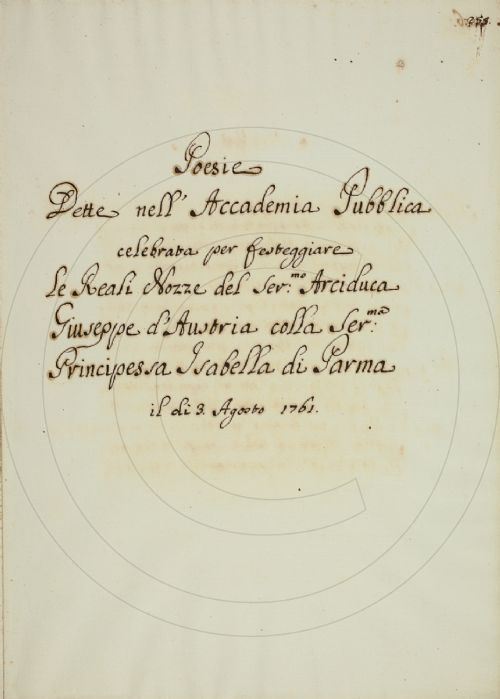 253.
Poesie
Dette nell' Accademia Pubblica
celebrata per festeggiare
le Reali Nozze del Ser:mo Arciduca
Giuseppe d'Austria colla Ser:ma
Principessa Isabella di Parma
il di 3. Agosto 1761.